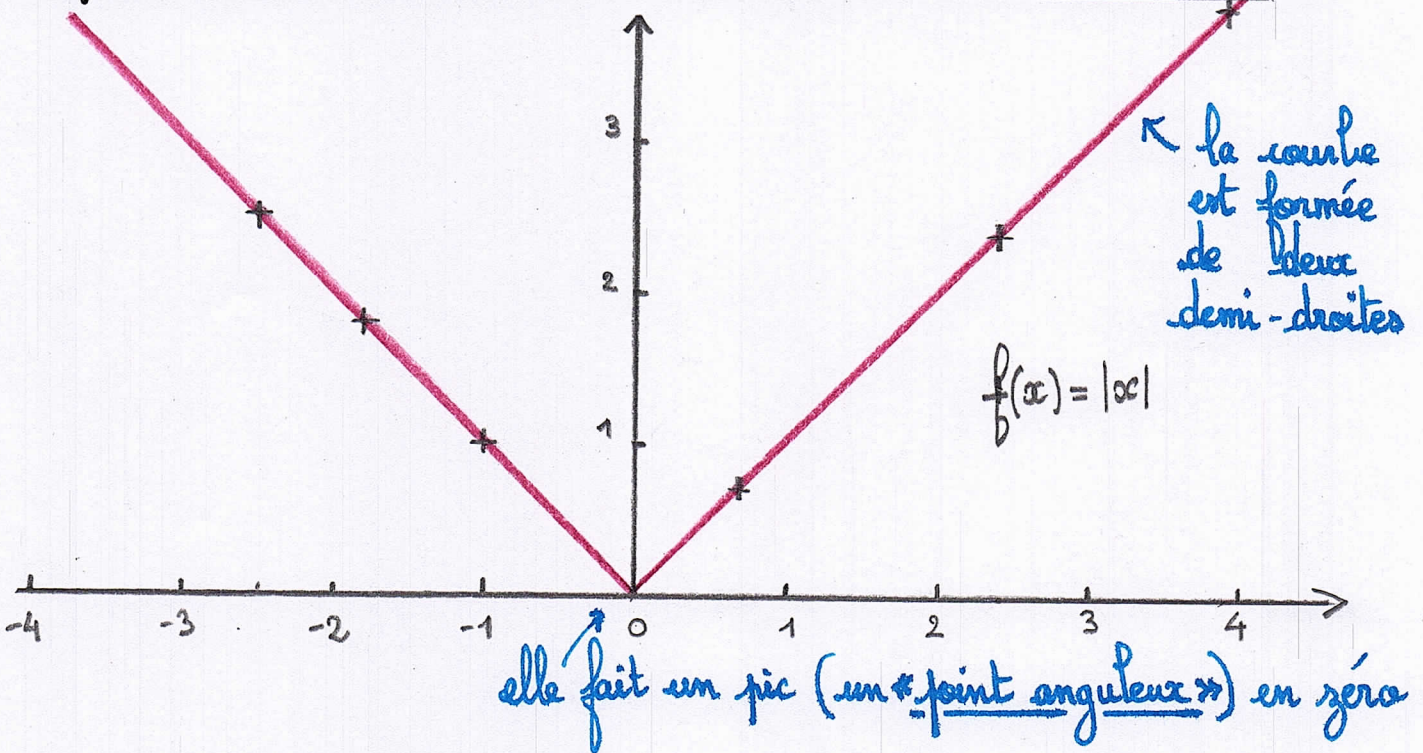 3
↖ la courbe
est formée
de deux
demi-droites
2
f(x) = |x|
1
-4 -3 -2 -1 0 1 2 3 4
elle fait un pic (un « point anguleux ») en zéro